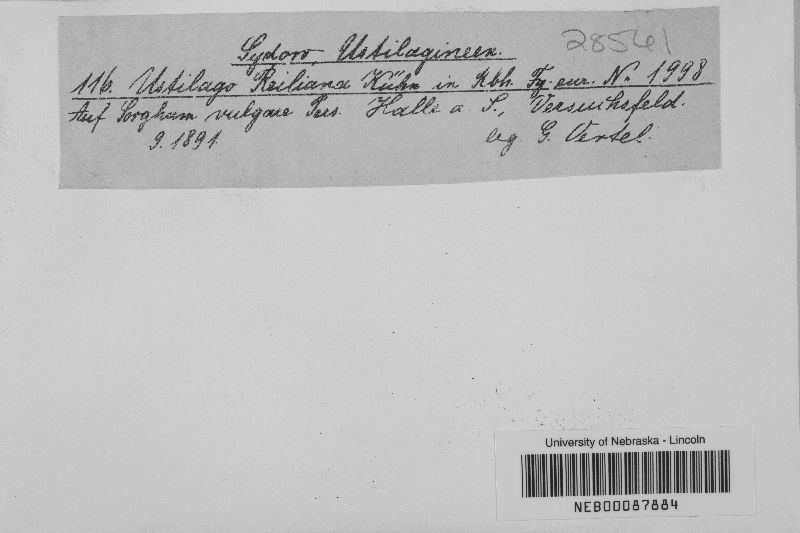 Sydow, Ustilagineen. 28561
116. Ustilago Reiliana Kühn in Rbh. Fg. eur. No. 1998
Auf Sorghum vulgare Pers. Halle a. S., Versuchsfeld.
9. 1891. leg. G. Oertel.
University of Nebraska - Lincoln
NEB00087884